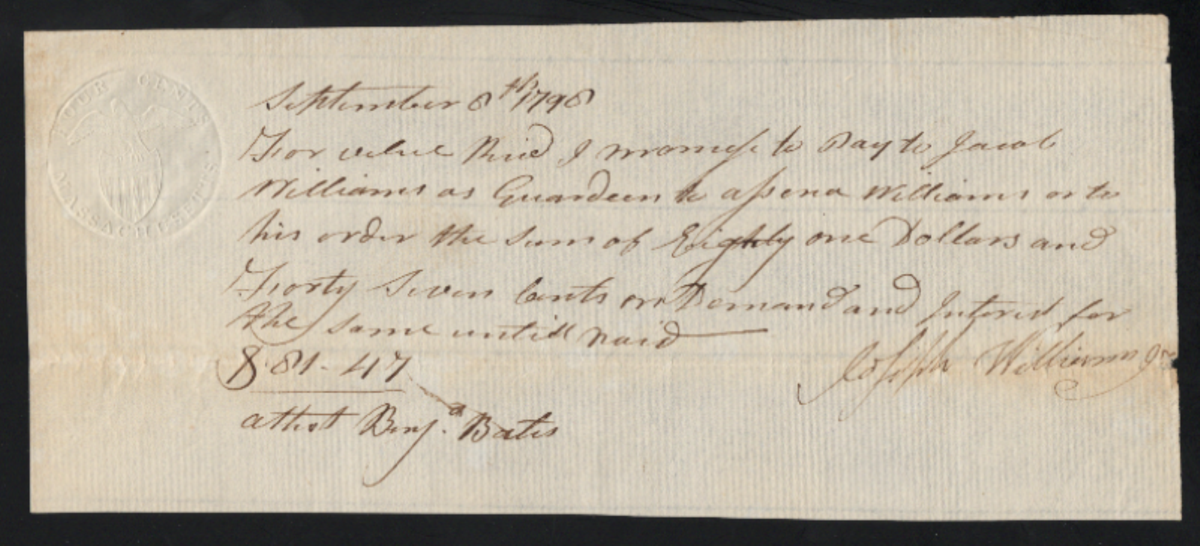 FOUR CENTS
MASSACHUSETTS
September 8th 1798
For value Recd I promise to Pay to Jacob
Williams as Guardeen to assena Williams or to
his order the Sum of Eighty one Dollars and
Forty Seven Cents on Demand and Interest for
the same untill paid
$ 81-47
Joseph Williams Jr
attest Benja. Bates